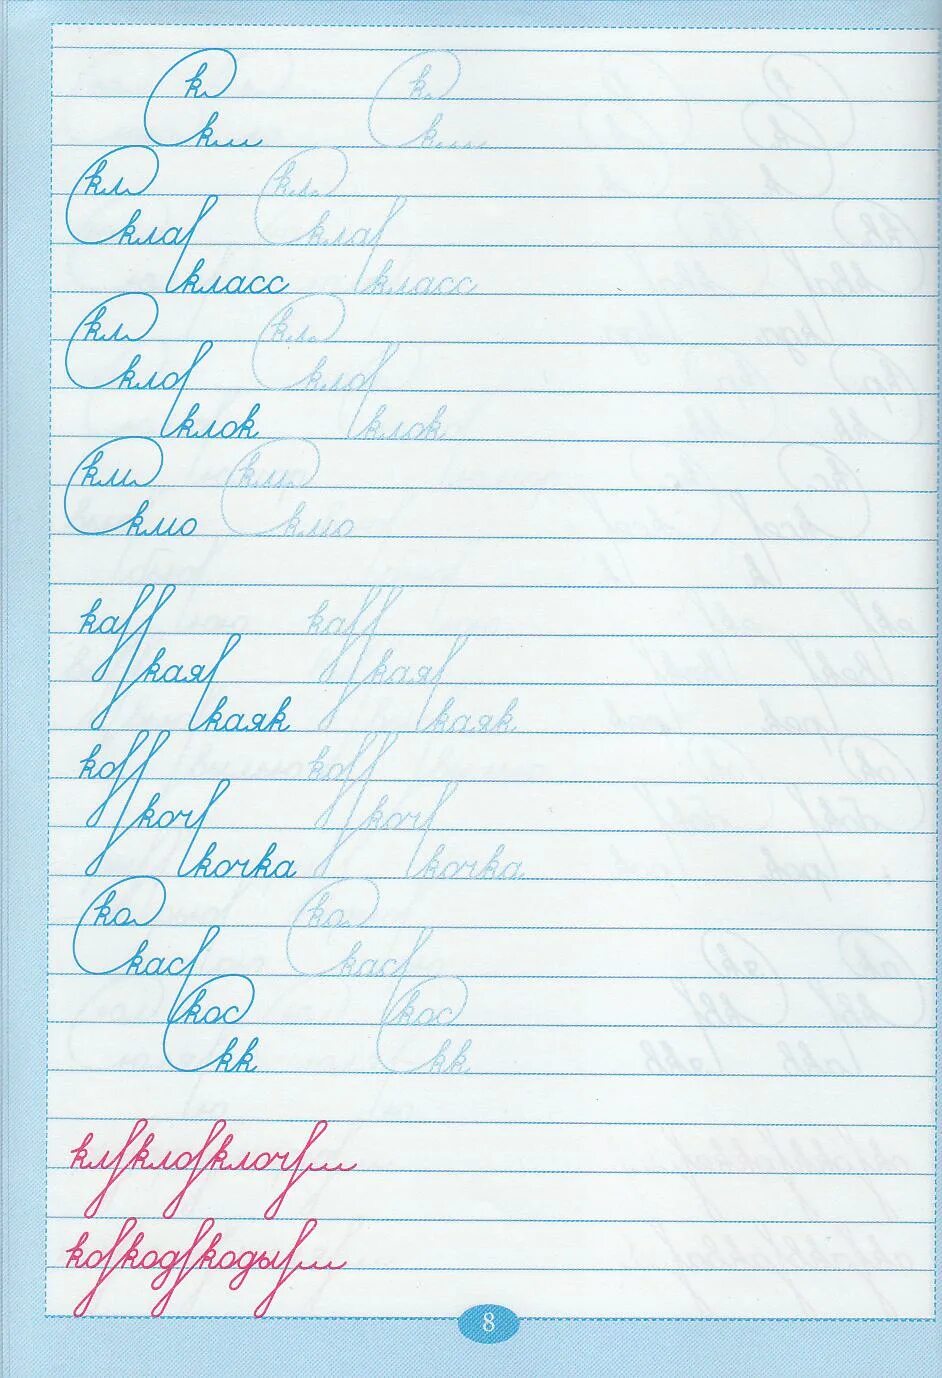 к к
км км
кл кл
кла кла
класс класс
кл кл
кло кло
клок клок
км км
кмо кмо
ка ка
кая кая
каяк каяк
ко ко
коч коч
кочка кочка
ка ка
кас кас
кос кос
кк кк
кл кло клоч
ко код коды
8